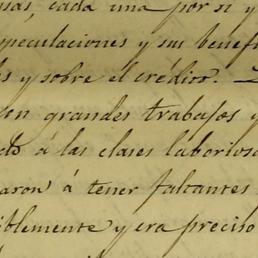 sas, cada una por si y
peculaciones y sus benefi
s y sobre el crédito.
en grandes trabajos y
do á las clases laborios
aron á tener faltantes
iblemente y era preciso